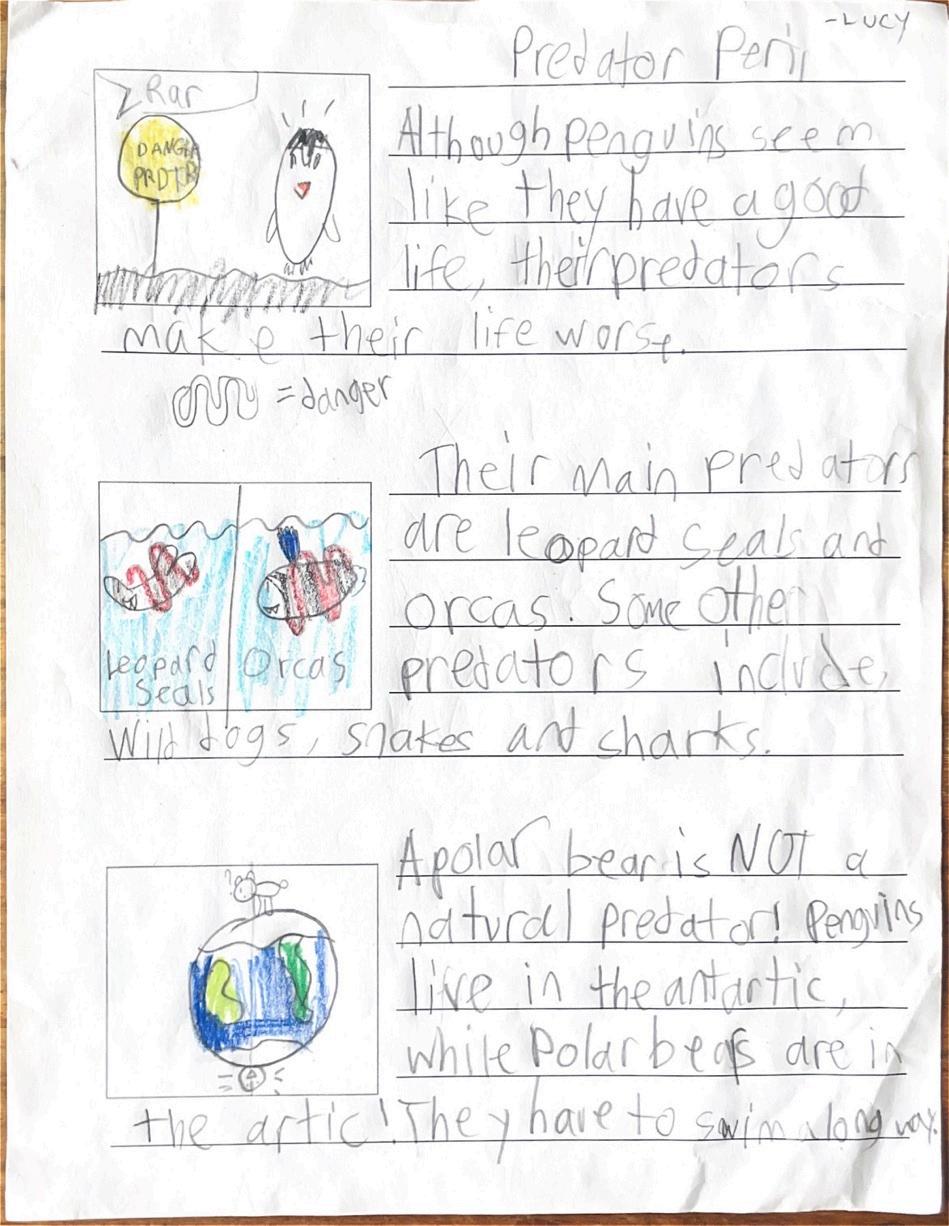 -LUCY
Predator Peril
Rar
DANGER
PRDTR
Although penguins seem
like they have a good
life, their predators
make their life worse.
=danger
Their main predators
are leopard seals and
orcas. Some other
predators include,
Leopard
Seals
Orcas
Wild dogs, snakes and sharks.
A polar bear is NOT a
natural predator! Penguins
live in the antartic,
while Polar bears are in
the artic! They have to swim a long way.